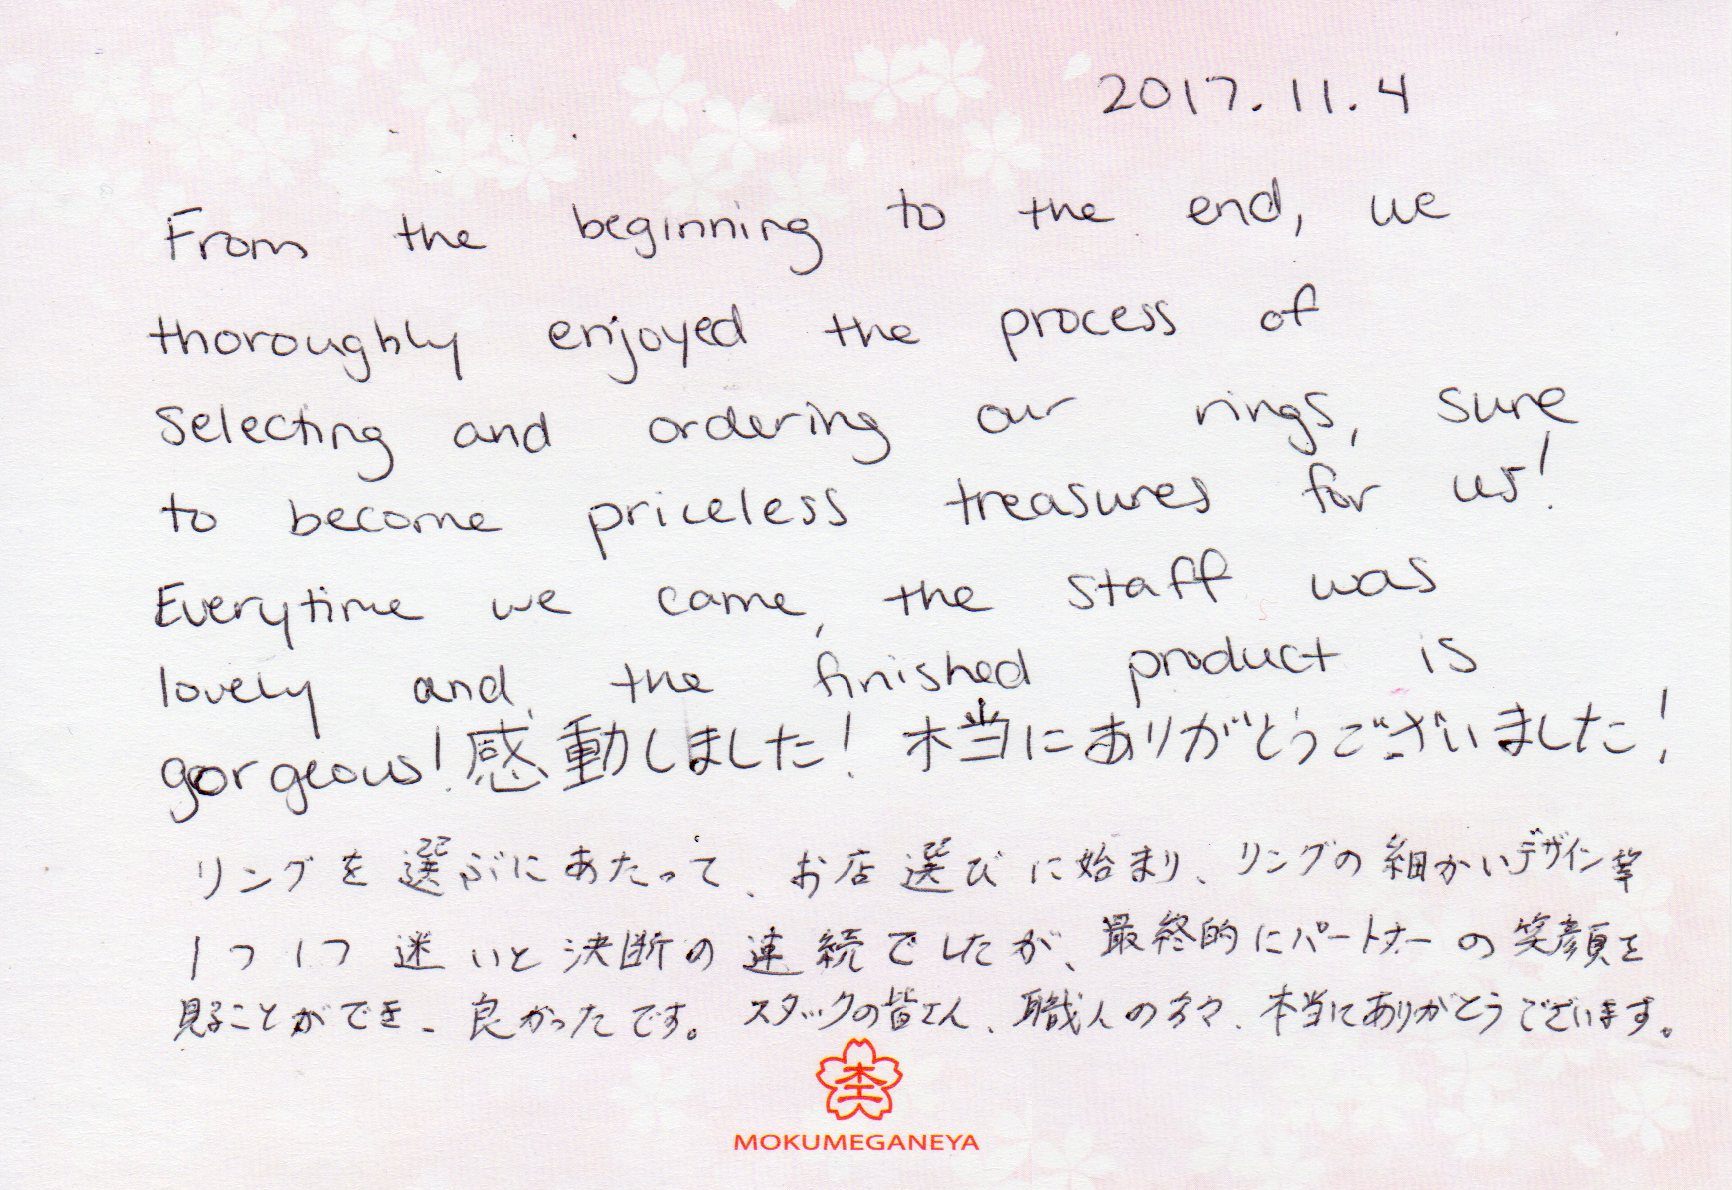 2017.11.4
From the beginning to the end, we
thoroughly enjoyed the process of
selecting and ordering our rings, sure
to become priceless treasures for us!
Everytime we came, the staff was
lovely and the finished product is
gorgeous! 感動しました! 本当にありがとうございました!
リングを選ぶにあたって、お店選びに始まり、リングの細かいデザイン等
1つ1つ迷いと決断の連続でしたが、最終的にパートナーの笑顔を
見ることができ、良かったです。スタッフの皆さん、職人の方々、本当にありがとうございます。
MOKUMEGANEYA